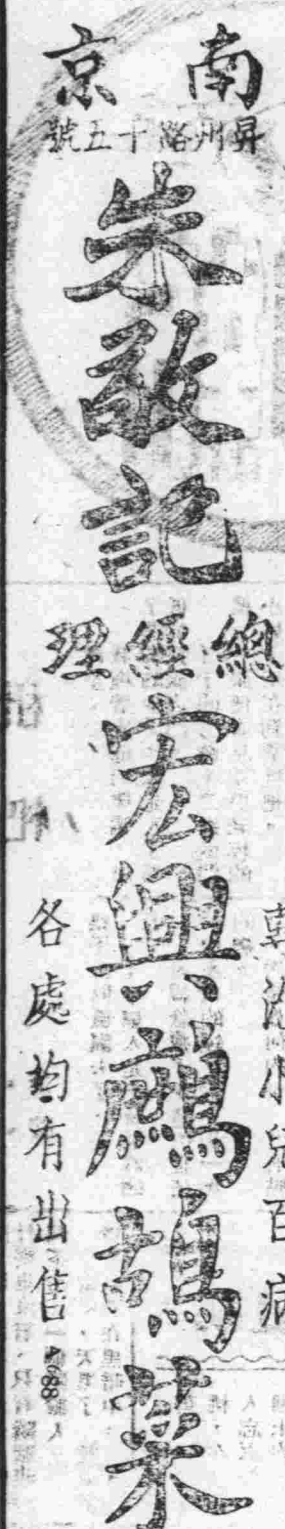 南京
昇州路十五號
朱敬記
總經理
宏興鷓鴣菜
專治小兒百病
各處均有出售